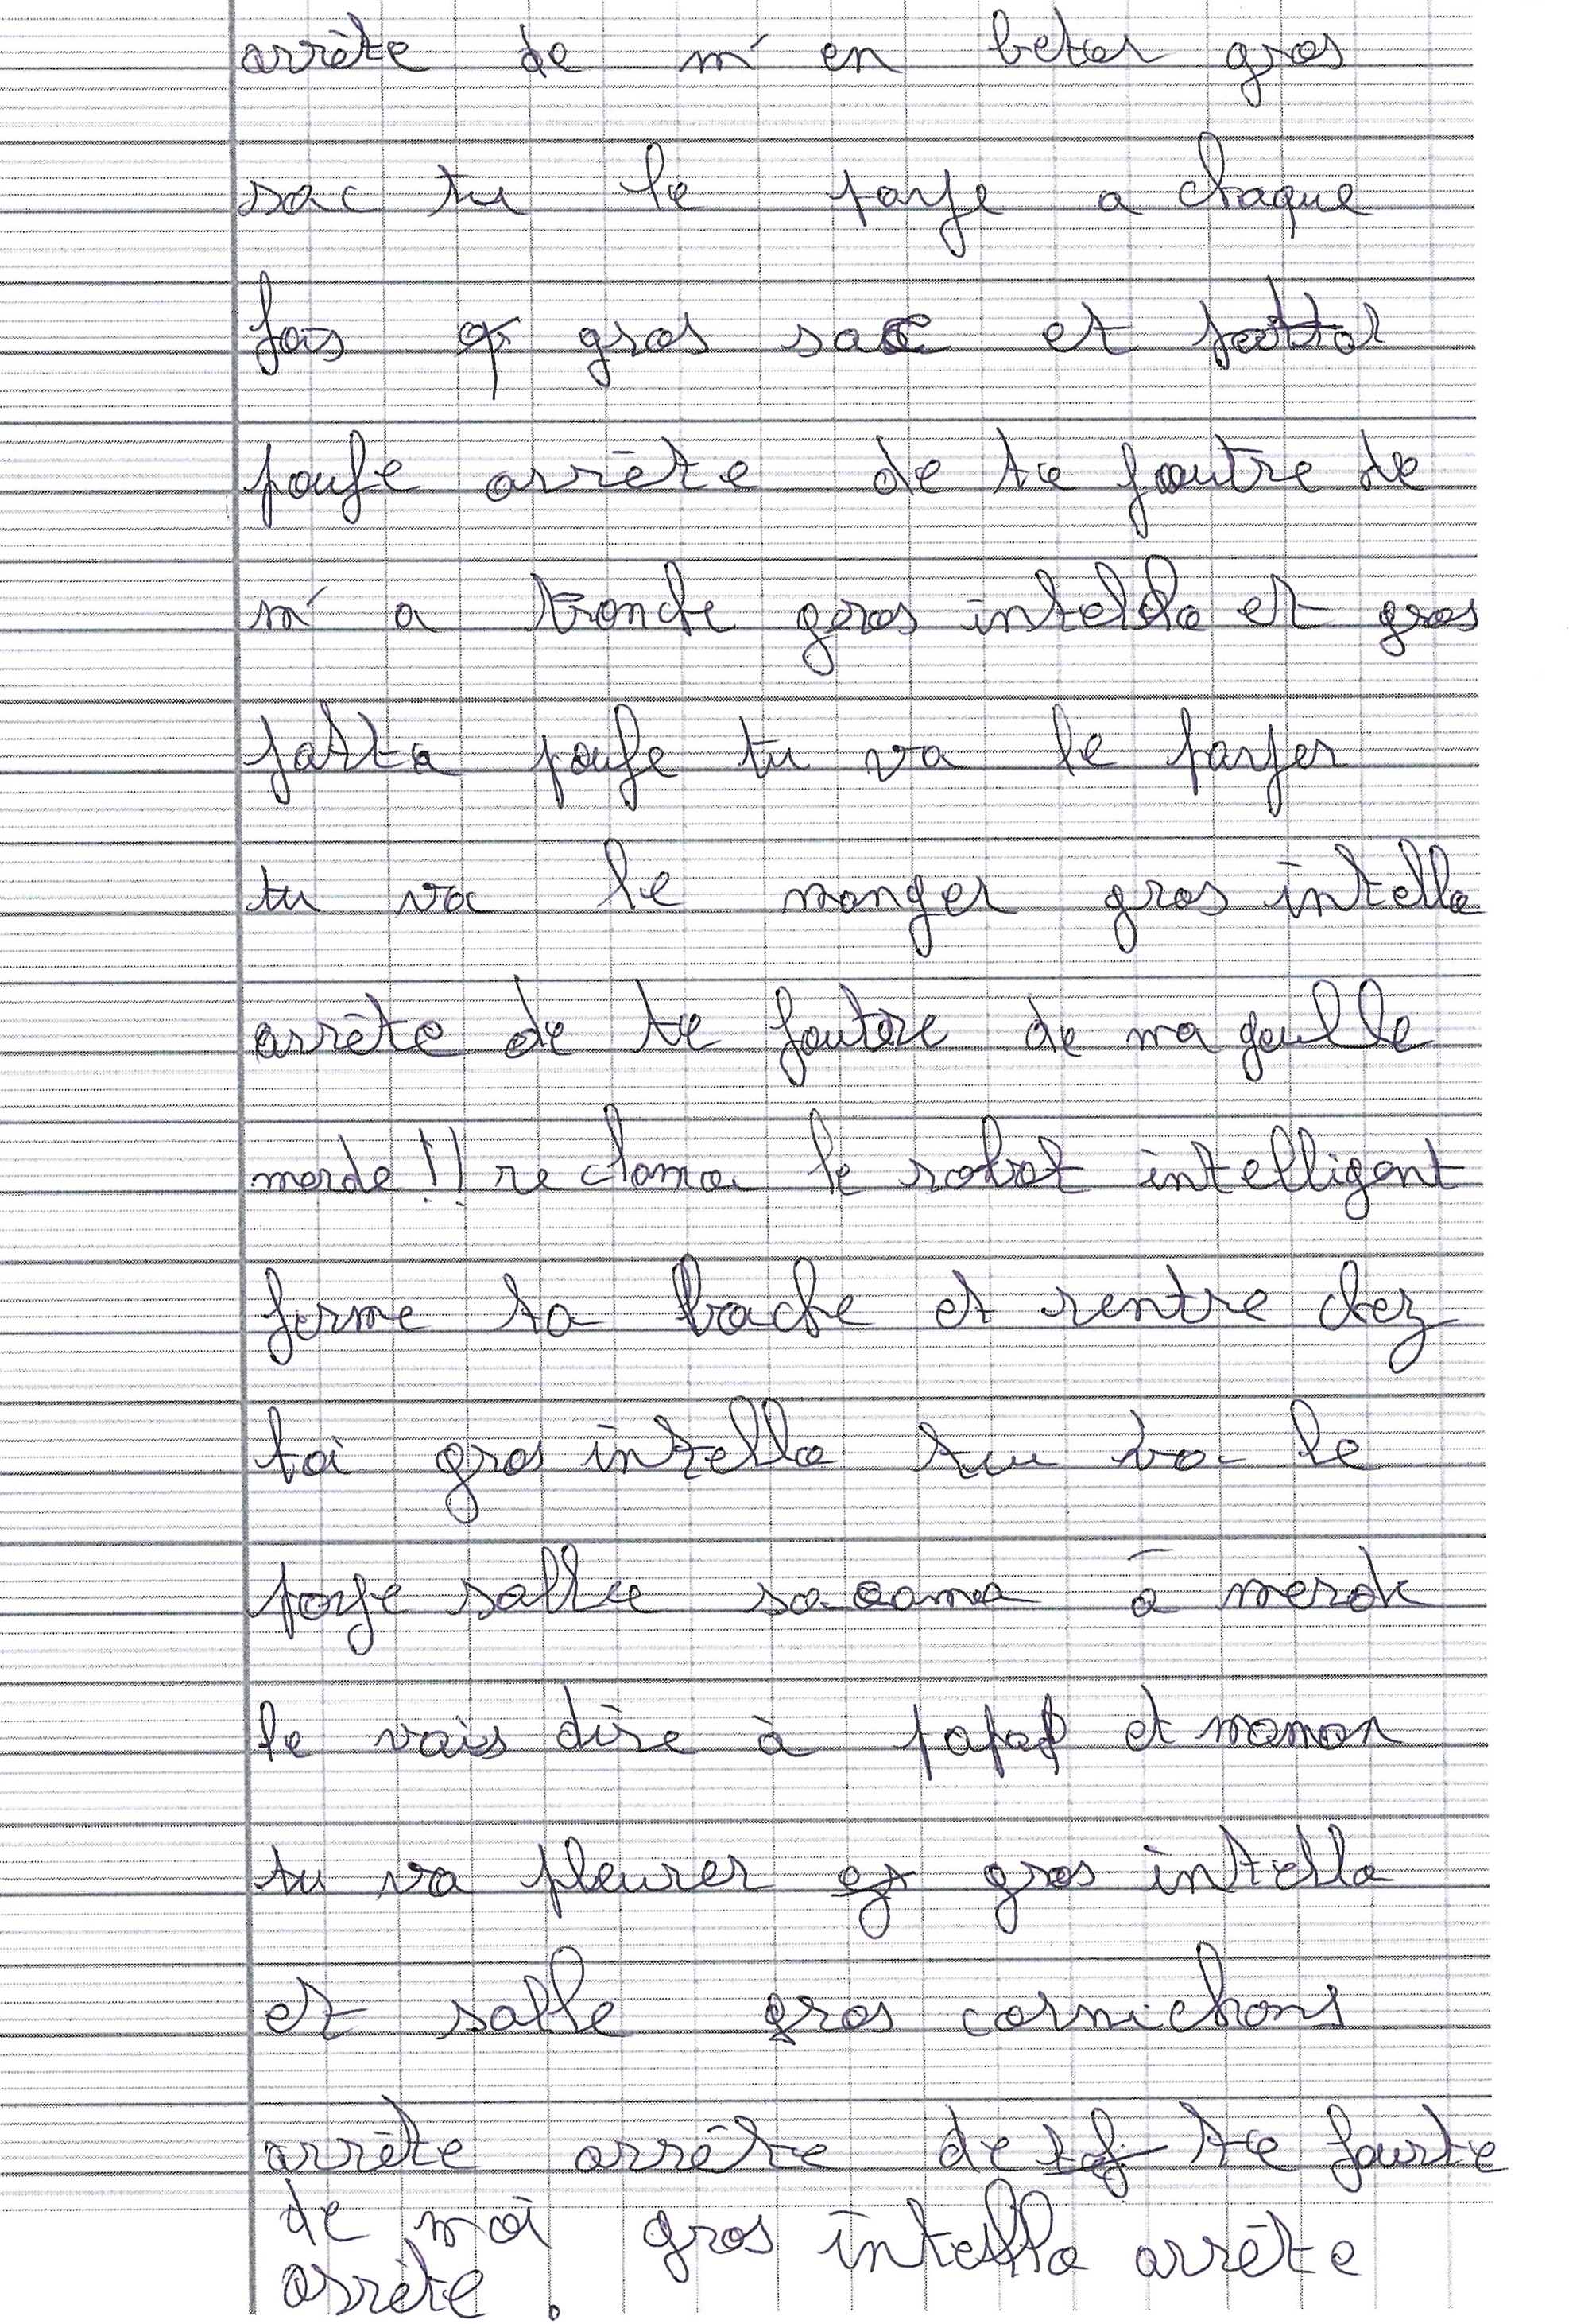 arrète de m' en beter gros
sac tu le paye a chaque
fois gros sac et
poufe arrète de te foutre de
m' a tronche gros intello et gros
patta poufe tu va le payer
tu va le manger gros intello
arrète de te foutre de ma geulle
merde !! re clama le robot intelligent
ferme ta bache et rentre chez
toi gros intello tu va le
paye salle à merde
le vais dire à papa et maman
tu va pleurer gros intello
et salle gros cornichons
arrète arrète de te fourte
de moi gros intello arrète
arrète .